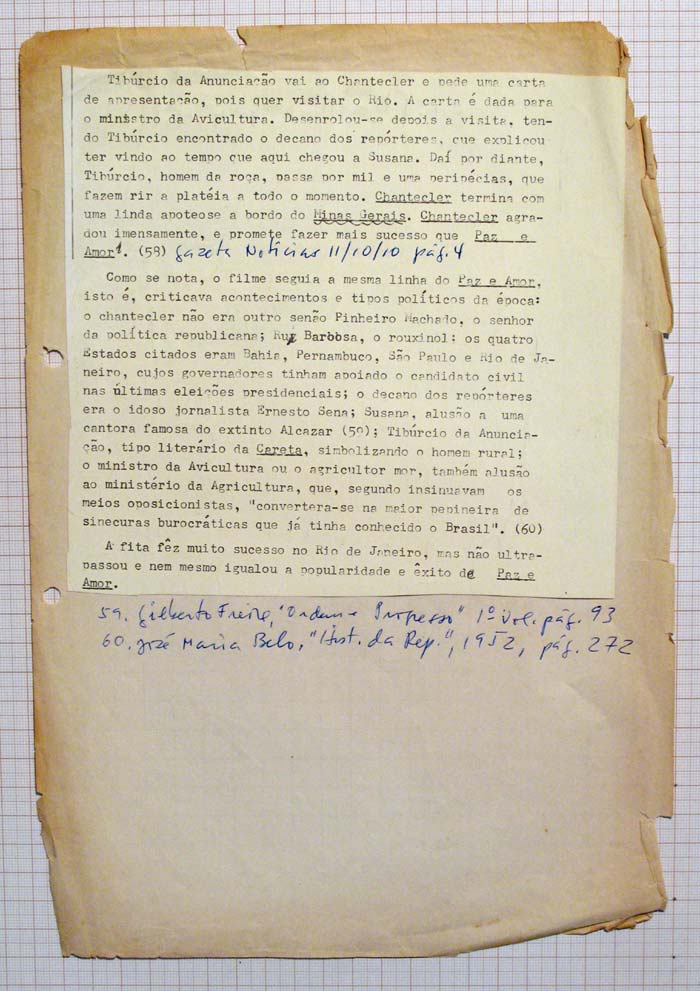 Tibúrcio da Anunciação vai ao Chantecler e pede uma carta
de apresentação, pois quer visitar o Rio. A carta é dada para
o ministro da Avicultura. Desenrolou-se depois a visita, ten-
do Tibúrcio encontrado o decano dos repórteres, que explicou
ter vindo ao tempo que aqui chegou a Susana. Daí por diante,
Tibúrcio, homem da roça, passa por mil e uma peripécias, que
fazem rir a platéia a todo o momento. Chantecler termina com
uma linda apoteose a bordo do Minas Gerais. Chantecler agra-
dou imensamente, e promete fazer mais sucesso que Paz e
Amor". (58) Gazeta Notícias 11/10/10 pág. 4
Como se nota, o filme seguia a mesma linha do Paz e Amor,
isto é, criticava acontecimentos e tipos políticos da época:
o chantecler não era outro senão Pinheiro Machado, o senhor
da política republicana; Ruy Barbosa, o rouxinol; os quatro
Estados citados eram Bahia, Pernambuco, São Paulo e Rio de Ja-
neiro, cujos governadores tinham apoiado o candidato civil
nas últimas eleições presidenciais; o decano dos repórteres
era o idoso jornalista Ernesto Sena; Susana, alusão a uma
cantora famosa do extinto Alcazar (59); Tibúrcio da Anuncia-
ção, tipo literário da Careta, simbolizando o homem rural;
o ministro da Avicultura ou o agricultor mor, também alusão
ao ministério da Agricultura, que, segundo insinuavam os
meios oposicionistas, "convertera-se na maior pepineira de
sinecuras burocráticas que já tinha conhecido o Brasil". (60)
A fita fêz muito sucesso no Rio de Janeiro, mas não ultra-
passou e nem mesmo igualou a popularidade e êxito de Paz e
Amor.
59. Gilberto Freire, "Ordem e Progresso" 1º vol. pág. 93
60. José Maria Belo, "Hist. da Rep.", 1952, pág. 272